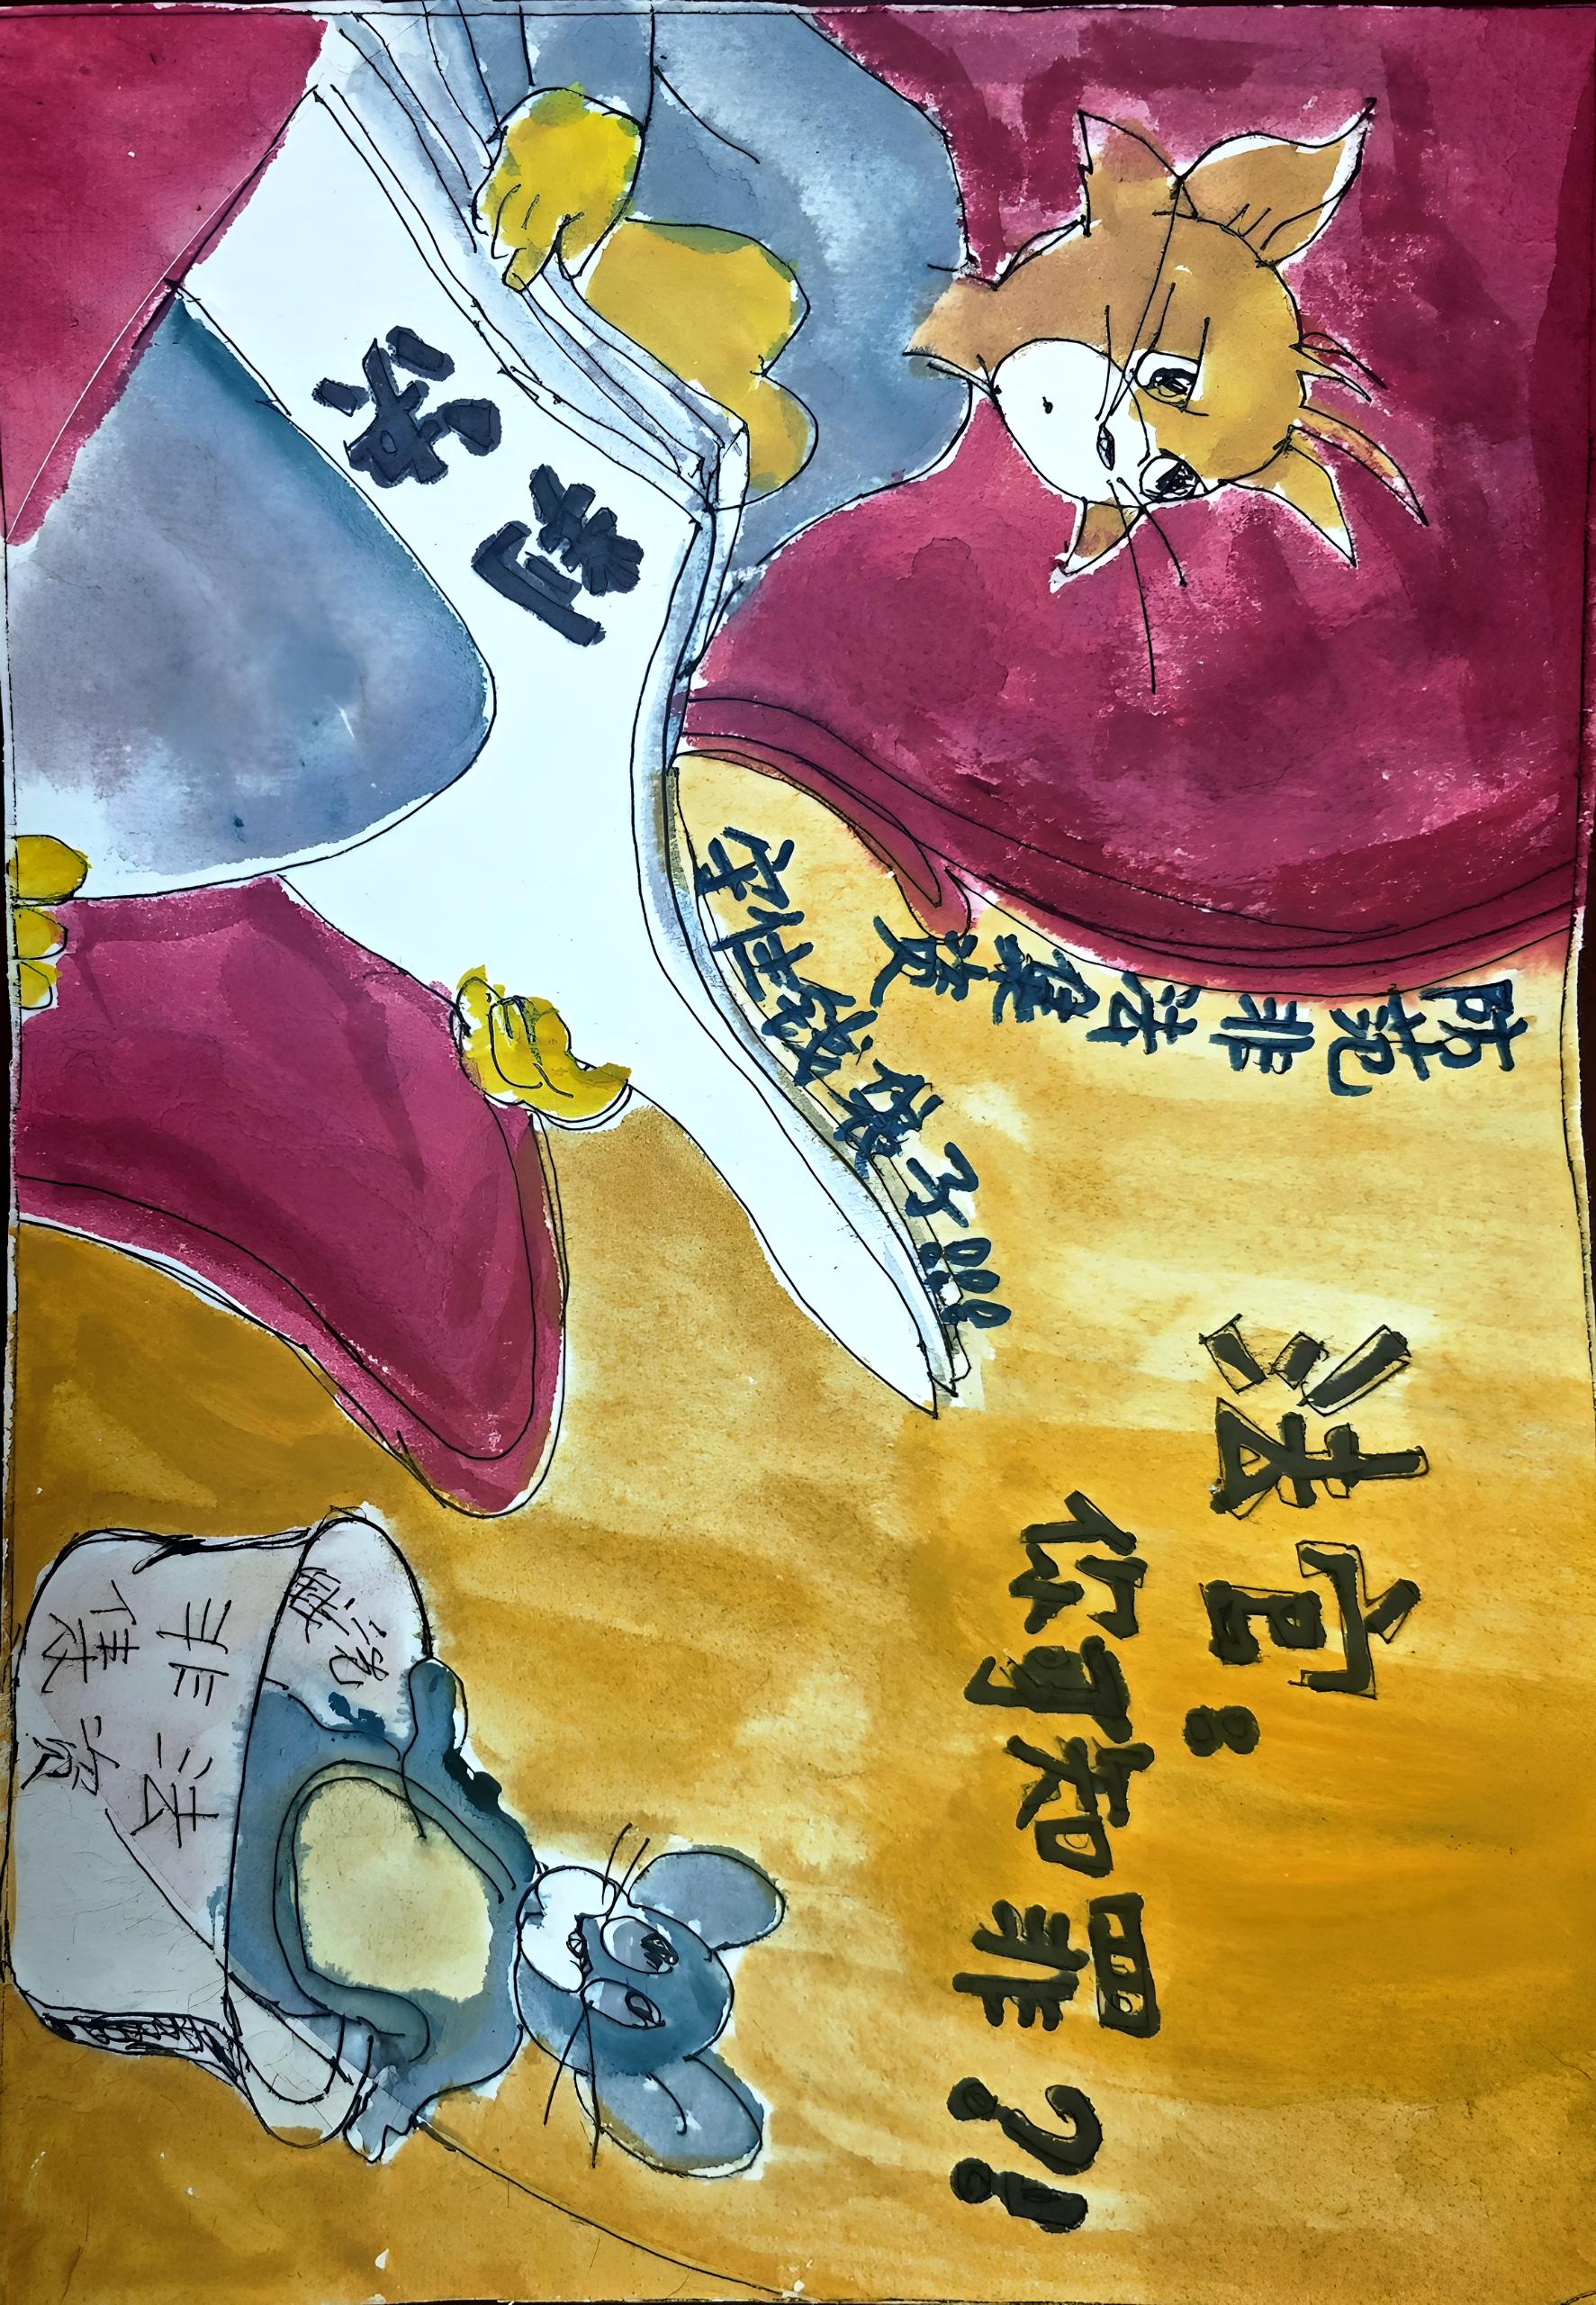 防范非法集资
守住钱袋子!!!
法官:
你可知罪?!
判决
非法
集资